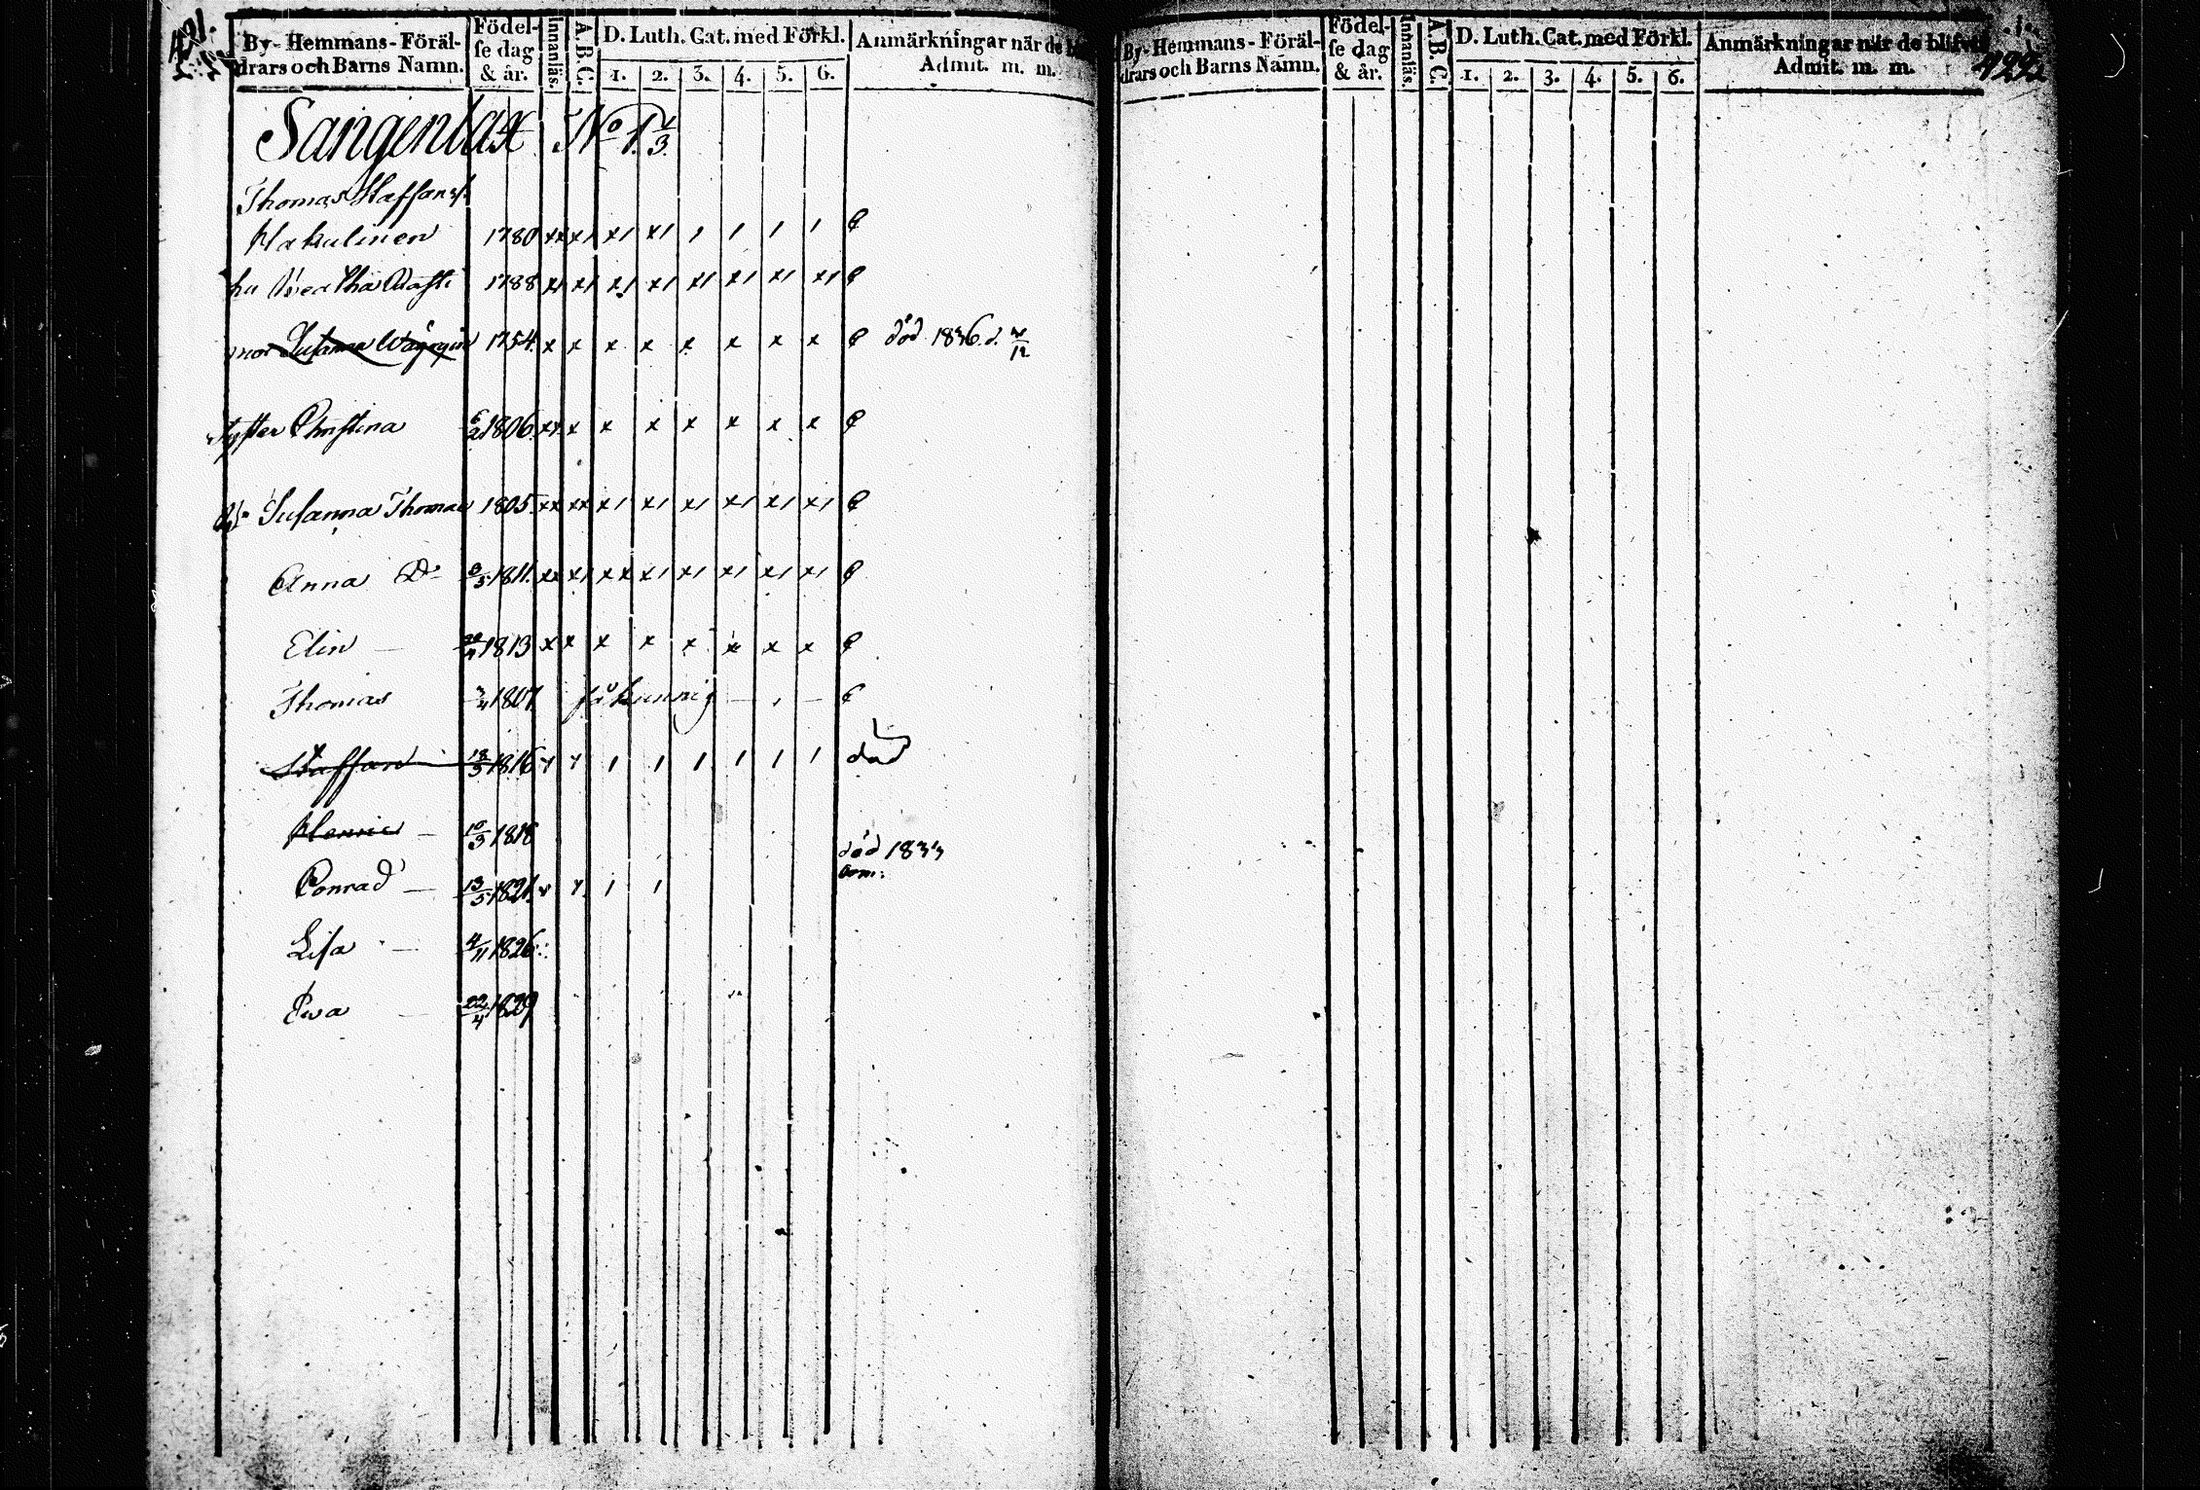 421.
By- Hemmans- Föräl-
drars och Barns Namn.
Födel-
se dag
& år.
Innanläs.
A. B. C.
D. Luth. Cat. med Förkl.
1. 2. 3. 4. 5. 6.
Anmärkningar när de
Admit. m. m.
Sangenlax No 1 1/3
Thomas Staffans
Hakulinen 1780 xx x/ x/ x/ / / / /
hu Bertha 1788 x/ x/ x/ x/ x/ x/ x/ x/
mor Susanna 1754. x x x x x x x x död 1836. d.
Syster Christina 1806. xx x x x x x x x
Susanna Thomae 1805. xx xx x/ x/ x/ x/ x/ x/
Anna Do 1811. xx x/ xx x/ x/ x/ x/ x/
Elin — 1813 x x x x x x x x
Thomas 1807 fåkunnig
Staffan 18/3 1816 / / / / / / död
— 10/3 1818
död 1833
Conrad — 13/5 1821. / /
Lisa — 4/11 1826
Ewa — 22/4 1829
By- Hemmans- Föräl-
drars och Barns Namn.
Födel-
se dag
& år.
Innanläs.
A. B. C.
D. Luth. Cat. med Förkl.
1. 2. 3. 4. 5. 6.
Anmärkningar när de blifvit
Admit. m. m.
422.